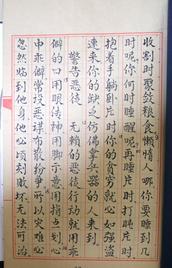 收割时聚敛粮食懒惰人哪你要睡到几
时呢你何时睡醒呢再睡片时打盹片时
抱着手躺卧片时你的贫穷就必如强盗
速来你的缺乏仿佛拿兵器的人来到
警告恶徒 无赖的恶徒行动就用乖
僻的口用眼传神用脚示意用指点划心
中乖僻常设恶谋布散纷争所以灾难必
忽然临到他身他必顷刻败坏无法可治